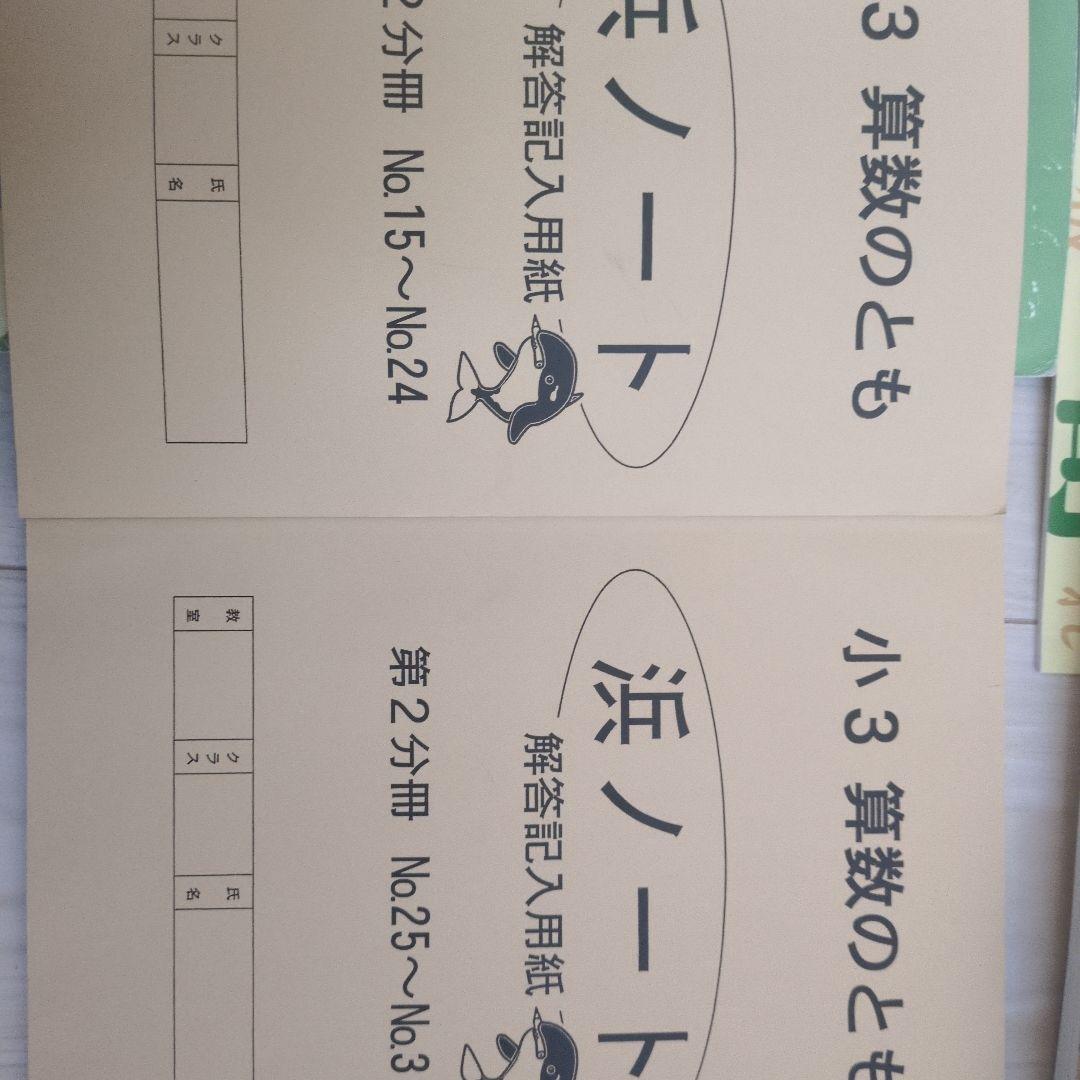 3 算数のとも
浜ノート
解答記入用紙
2分冊 No.15～No.24
クラス
氏名
小3 算数のとも
浜ノート
解答記入用紙
第2分冊 No.25～No.3
教室
クラス
氏名